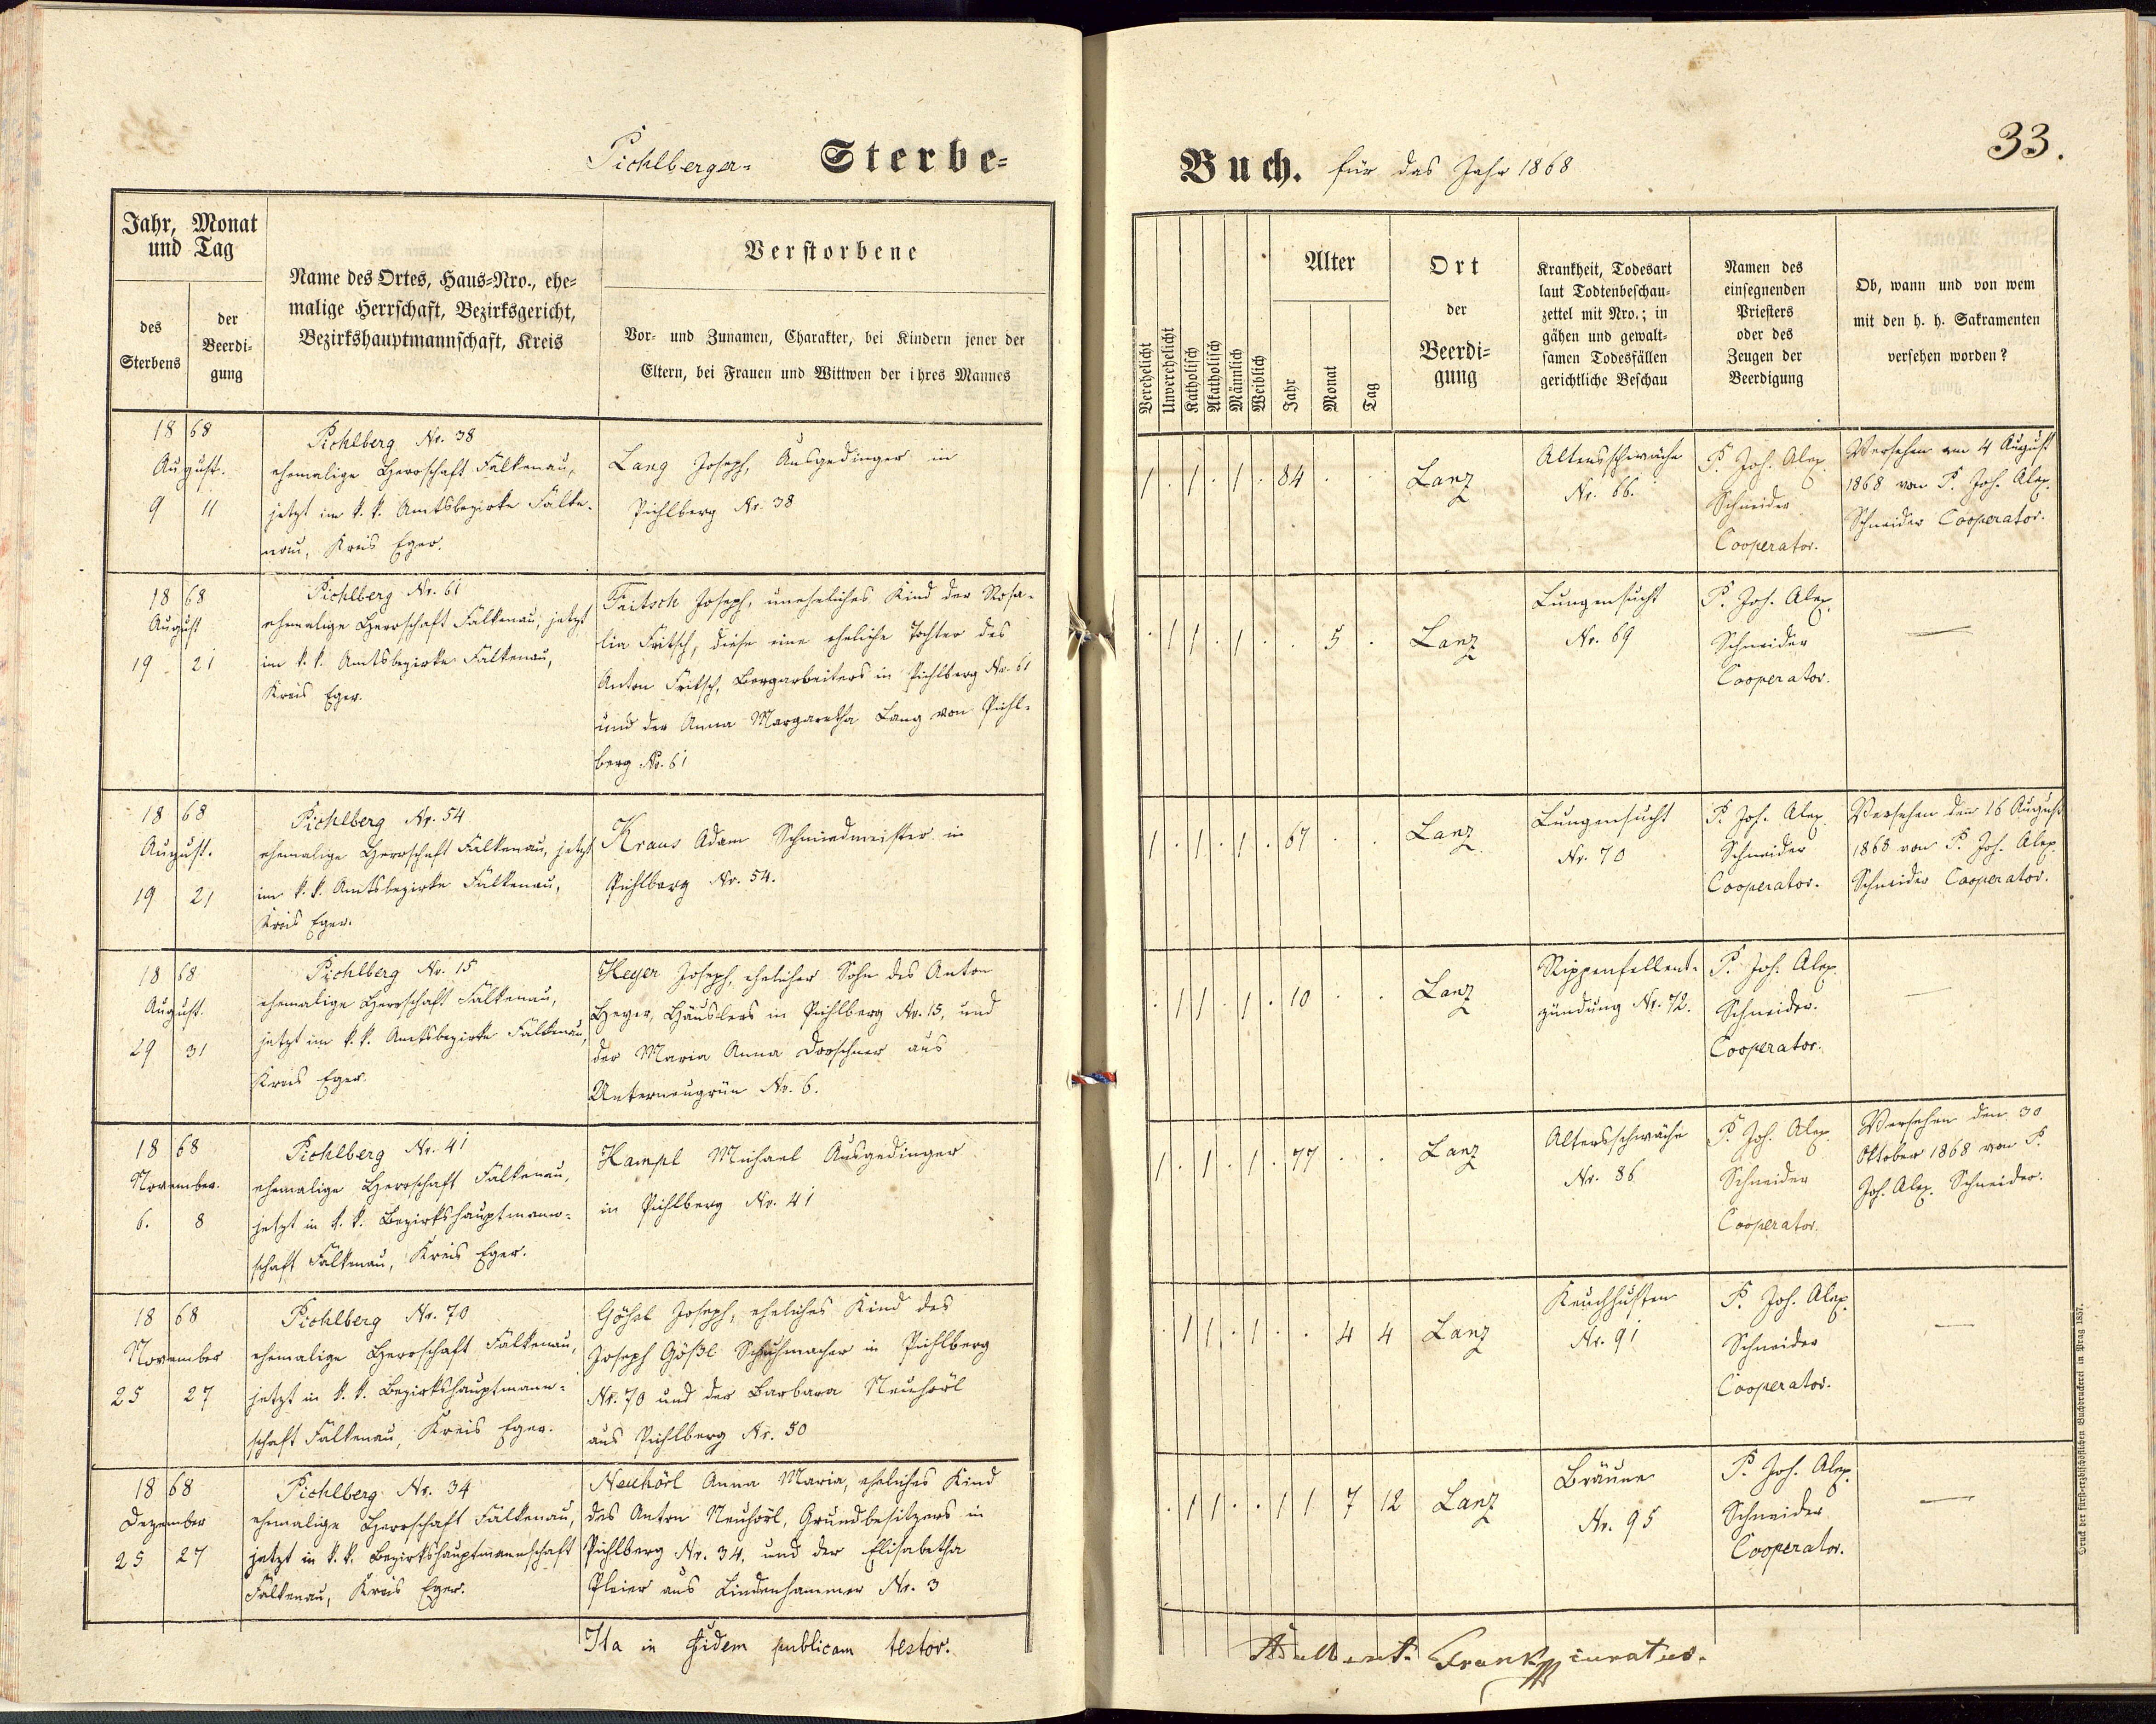 Pichlberger- Sterbe-
Jahr, Monat
und Tag
des
Sterbens
der
Beerdi-
gung
Name des Ortes, Haus-Nro., ehe-
malige Herrschaft, Bezirksgericht,
Bezirkshauptmannschaft, Kreis
Verstorbene
Vor- und Zunamen, Charakter, bei Kindern jener der
Eltern, bei Frauen und Wittwen der ihres Mannes
18 68
August.
9 11
Pichlberg Nr. 38
ehemalige Herrschaft Falkenau,
jetzt im k. k. Amtsbezirke Falke-
nau, Kreis Eger.
Lang Joseph, Ausgedinger in
Pichlberg Nr. 38
18 68
August
19 21
Pichlberg Nr. 61
ehemalige Herrschaft Falkenau, jetzt
im k. k. Amtsbezirke Falkenau,
Kreis Eger.
Fritsch Joseph, uneheliches Kind der Rosa-
lia Fritsch, diese eine eheliche Tochter des
Anton Fritsch, Bergarbeiters in Pichlberg Nr. 61
und der Anna Margaretha Lang von Pichl-
berg Nr. 61
18 68
August.
19 21
Pichlberg Nr. 54
ehemalige Herrschaft Falkenau, jetzt
im k. k. Amtsbezirke Falkenau,
Kreis Eger.
Kraus Adam Schmiedmeister in
Pichlberg Nr. 54.
18 68
August.
29 31
Pichlberg Nr. 15
ehemalige Herrschaft Falkenau,
jetzt im k. k. Amtsbezirke Falkenau,
Kreis Eger.
Heyer Joseph, ehelicher Sohn des Anton
Heyer, Häuslers in Pichlberg Nr. 15, und
der Maria Anna Dorschner aus
Unterneugrün Nr. 6.
18 68
November.
6. 8
Pichlberg Nr. 41
ehemalige Herrschaft Falkenau,
jetzt in k. k. Bezirkshauptmann-
schaft Falkenau, Kreis Eger.
Hampl Michael Ausgedinger
in Pichlberg Nr. 41
18 68
November
25 27
Pichlberg Nr. 70
ehemalige Herrschaft Falkenau,
jetzt in k. k. Bezirkshauptmann-
schaft Falkenau, Kreis Eger.
Gößl Joseph, eheliches Kind des
Joseph Gößl Schuhmacher in Pichlberg
Nr. 70 und der Barbara Neuhörl
aus Pichlberg Nr. 50
18 68
Dezember
25 27
Pichlberg Nr. 34
ehemalige Herrschaft Falkenau,
jetzt in k. k. Bezirkshauptmannschaft
Falkenau, Kreis Eger.
Neuhörl Anna Maria, eheliches Kind
des Anton Neuhörl, Grundbesitzers in
Pichlberg Nr. 34, und der Elisabetha
Pleier aus Lindenhammer Nr. 3
Ita in fidem publicam testor.
33.
Buch. für das Jahr 1868
Verehelicht
Unverehelicht
Katholisch
Akatholisch
Männlich
Weiblich
Alter
Jahr
Monat
Tag
Ort
der
Beerdi-
gung
Krankheit, Todesart
laut Todtenbeschau-
zettel mit Nro.; in
gähen und gewalt-
samen Todesfällen
gerichtliche Beschau
Namen des
einsegnenden
Priesters
oder des
Zeugen der
Beerdigung
Ob, wann und von wem
mit den h. h. Sakramenten
versehen worden?
1 . 1 . 1 . 84 . . Lanz
Altersschwäche
Nr. 66.
P. Joh. Alex.
Schneider
Cooperator.
Versehen am 4 August
1868 von P. Joh. Alex.
Schneider Cooperator.
. 1 1 . 1 . . 5 . Lanz
Lungensucht
Nr. 69
P. Joh. Alex.
Schneider
Cooperator.
—
1 . 1 . 1 . 67 . . Lanz
Lungensucht
Nr. 70
P. Joh. Alex.
Schneider
Cooperator.
Versehen den 16 August
1868 von P. Joh. Alex.
Schneider Cooperator.
. 1 1 . 1 . 10 . . Lanz
Rippenfellent-
zündung Nr. 72.
P. Joh. Alex.
Schneider.
Cooperator.
—
1 . 1 . 1 . 77 . . Lanz
Altersschwäche
Nr. 86
P. Joh. Alex.
Schneider
Cooperator.
Versehen den 30
Oktober 1868 von P.
Joh. Alex. Schneider.
. 1 1 . 1 . . 4 4 Lanz
Keuchhusten
Nr. 91
P. Joh. Alex.
Schneider
Cooperator.
—
. 1 1 . . 1 1 7 12 Lanz
Bräune
Nr. 95
P. Joh. Alex.
Schneider
Cooperator.
—
Adalbert Frank curatus.
Druck der fürsterzbischöflichen Buchdruckerei in Prag 1857.